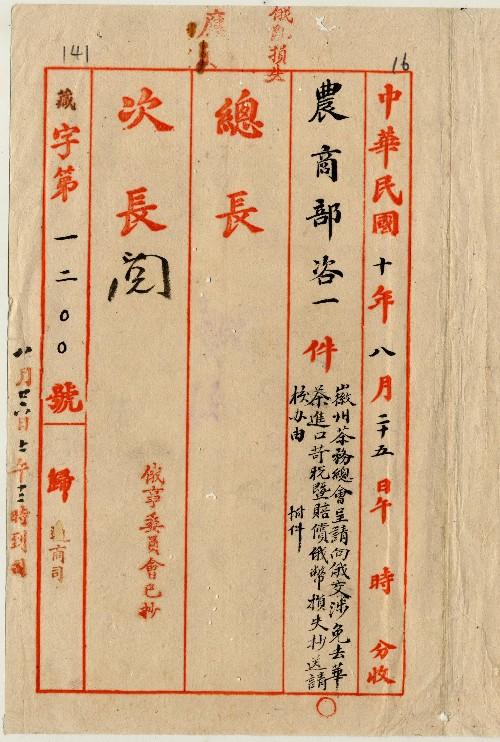 16
141
俄亂損失
中華民國十年八月二十五日午 時 分收
農商部咨一件
徽州茶務總會呈請向俄交涉免去華
茶進口苛稅暨賠償俄幣損失抄送請
核办由 附件
總長
次長
閱
俄事委員會已抄
藏字第一二〇〇號
歸
通商司
八月廿六日上午十二時到司